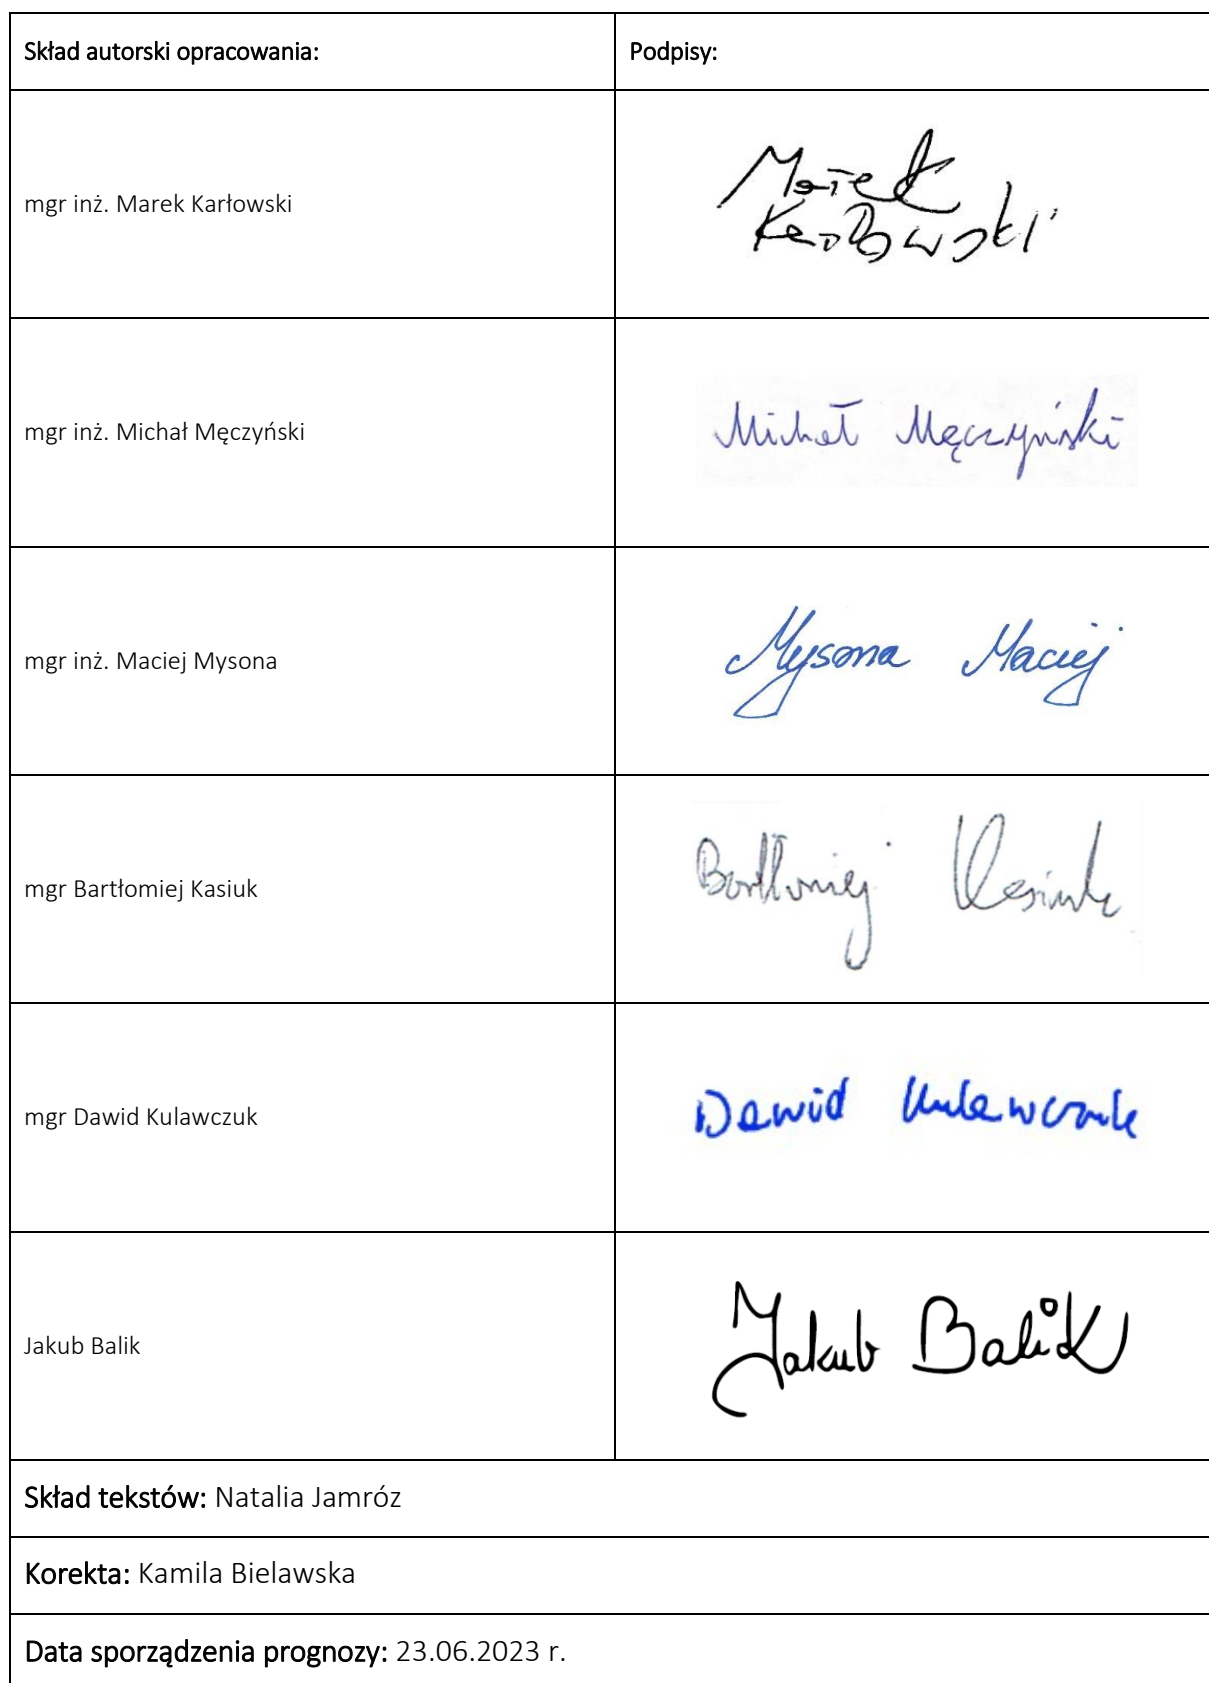 Skład autorski opracowania: Podpisy:
mgr inż. Marek Karłowski
Marek
Karłowski
mgr inż. Michał Męczyński Michał Męczyński
mgr inż. Maciej Mysona Mysona Maciej
mgr Bartłomiej Kasiuk Bartłomiej Kasiuk
mgr Dawid Kulawczuk Dawid Kulawczuk
Jakub Balik Jakub Balik
Skład tekstów: Natalia Jamróz
Korekta: Kamila Bielawska
Data sporządzenia prognozy: 23.06.2023 r.